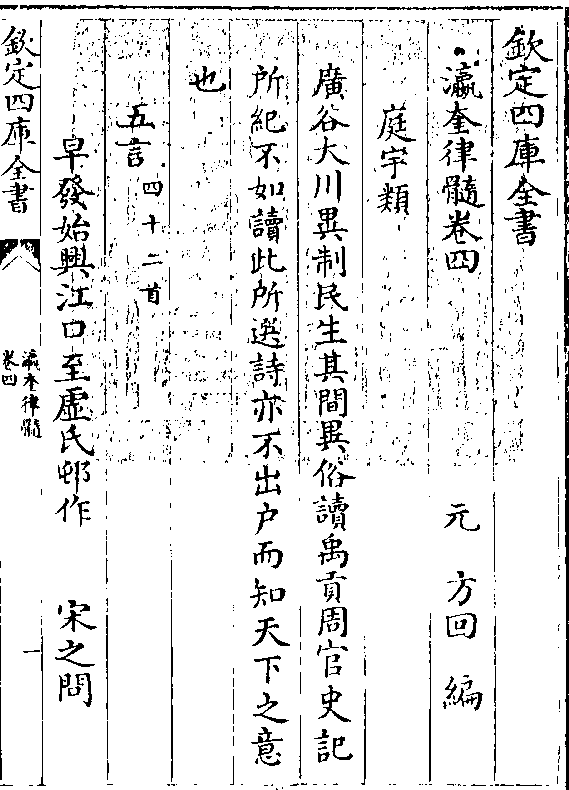 欽定四庫全書
瀛奎律髓卷四
元 方回 編
庭宇類
廣谷大川異制民生其間異俗讀禹貢周官史記
所紀不如讀此所選詩亦不出户而知天下之意
也
五言四十二首
早發始興江口至虚氏邨作 宋之問
欽定四庫全書
瀛奎律髓
卷四
一